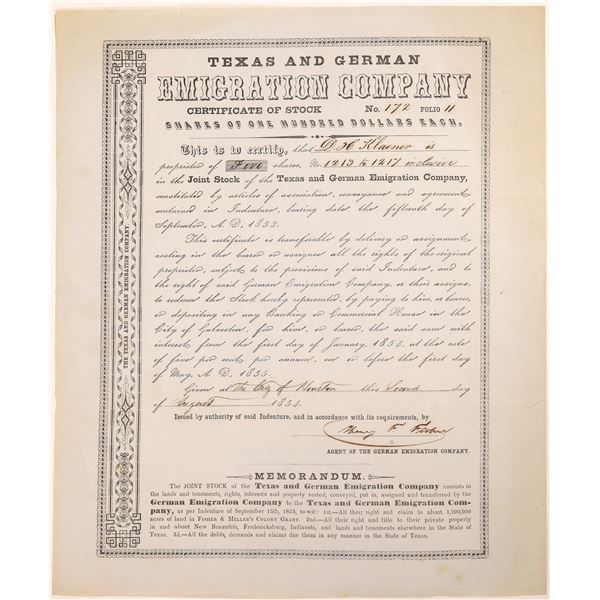 TEXAS AND GERMAN
EMIGRATION COMPANY
CERTIFICATE OF STOCK No. 172 FOLIO 11
SHARES OF ONE HUNDRED DOLLARS EACH.
This is to certify, that D H Klaener is
proprietor of Five shares, No. 1213 to 1217 inclusive
in the Joint Stock of the Texas and German Emigration Company,
constituted by articles of association, conveyance and agreement
contained in Indenture, bearing date the fifteenth day of
September, A. D. 1853.
This certificate is transferable by delivery or assignment,
vesting in the bearer or assignee all the rights of the original
proprietor, subject to the provisions of said Indenture, and to
the right of said German Emigration Company, or their assigns,
to redeem the Stock hereby represented, by paying to him, or bearer,
or depositing in any Banking or Commercial House in the
City of Galveston, for him, or bearer, the said sum with
interest from the first day of January, 1854, at the rate
of five per cent per annum, on or before the first day
of May, A. D. 1855.
Given at The City of Houston this Second day
of August 1854.
Issued by authority of said Indenture, and in accordance with its requirements, by
Henry F. Fisher
AGENT OF THE GERMAN EMIGRATION COMPANY.
MEMORANDUM.
The JOINT STOCK of the Texas and German Emigration Company consists in
the lands and tenements, rights, interests and property vested, conveyed, put in, assigned and transferred by the
German Emigration Company to the Texas and German Emigration Com-
pany, as per Indenture of September 15th, 1853, to wit: 1st.—All their right and claim to about 1,200,000
acres of land in FISHER & MILLER'S COLONY GRANT. 2nd.—All their right and title to their private property
in and about New Braunfels, Fredericksburg, Indianola, and lands and tenements elsewhere in the State of
Texas. 3d.—All the debts, demands and claims due them in any manner in the State of Texas.
THE TEXAS AND GERMAN EMIGRATION COMPANY.